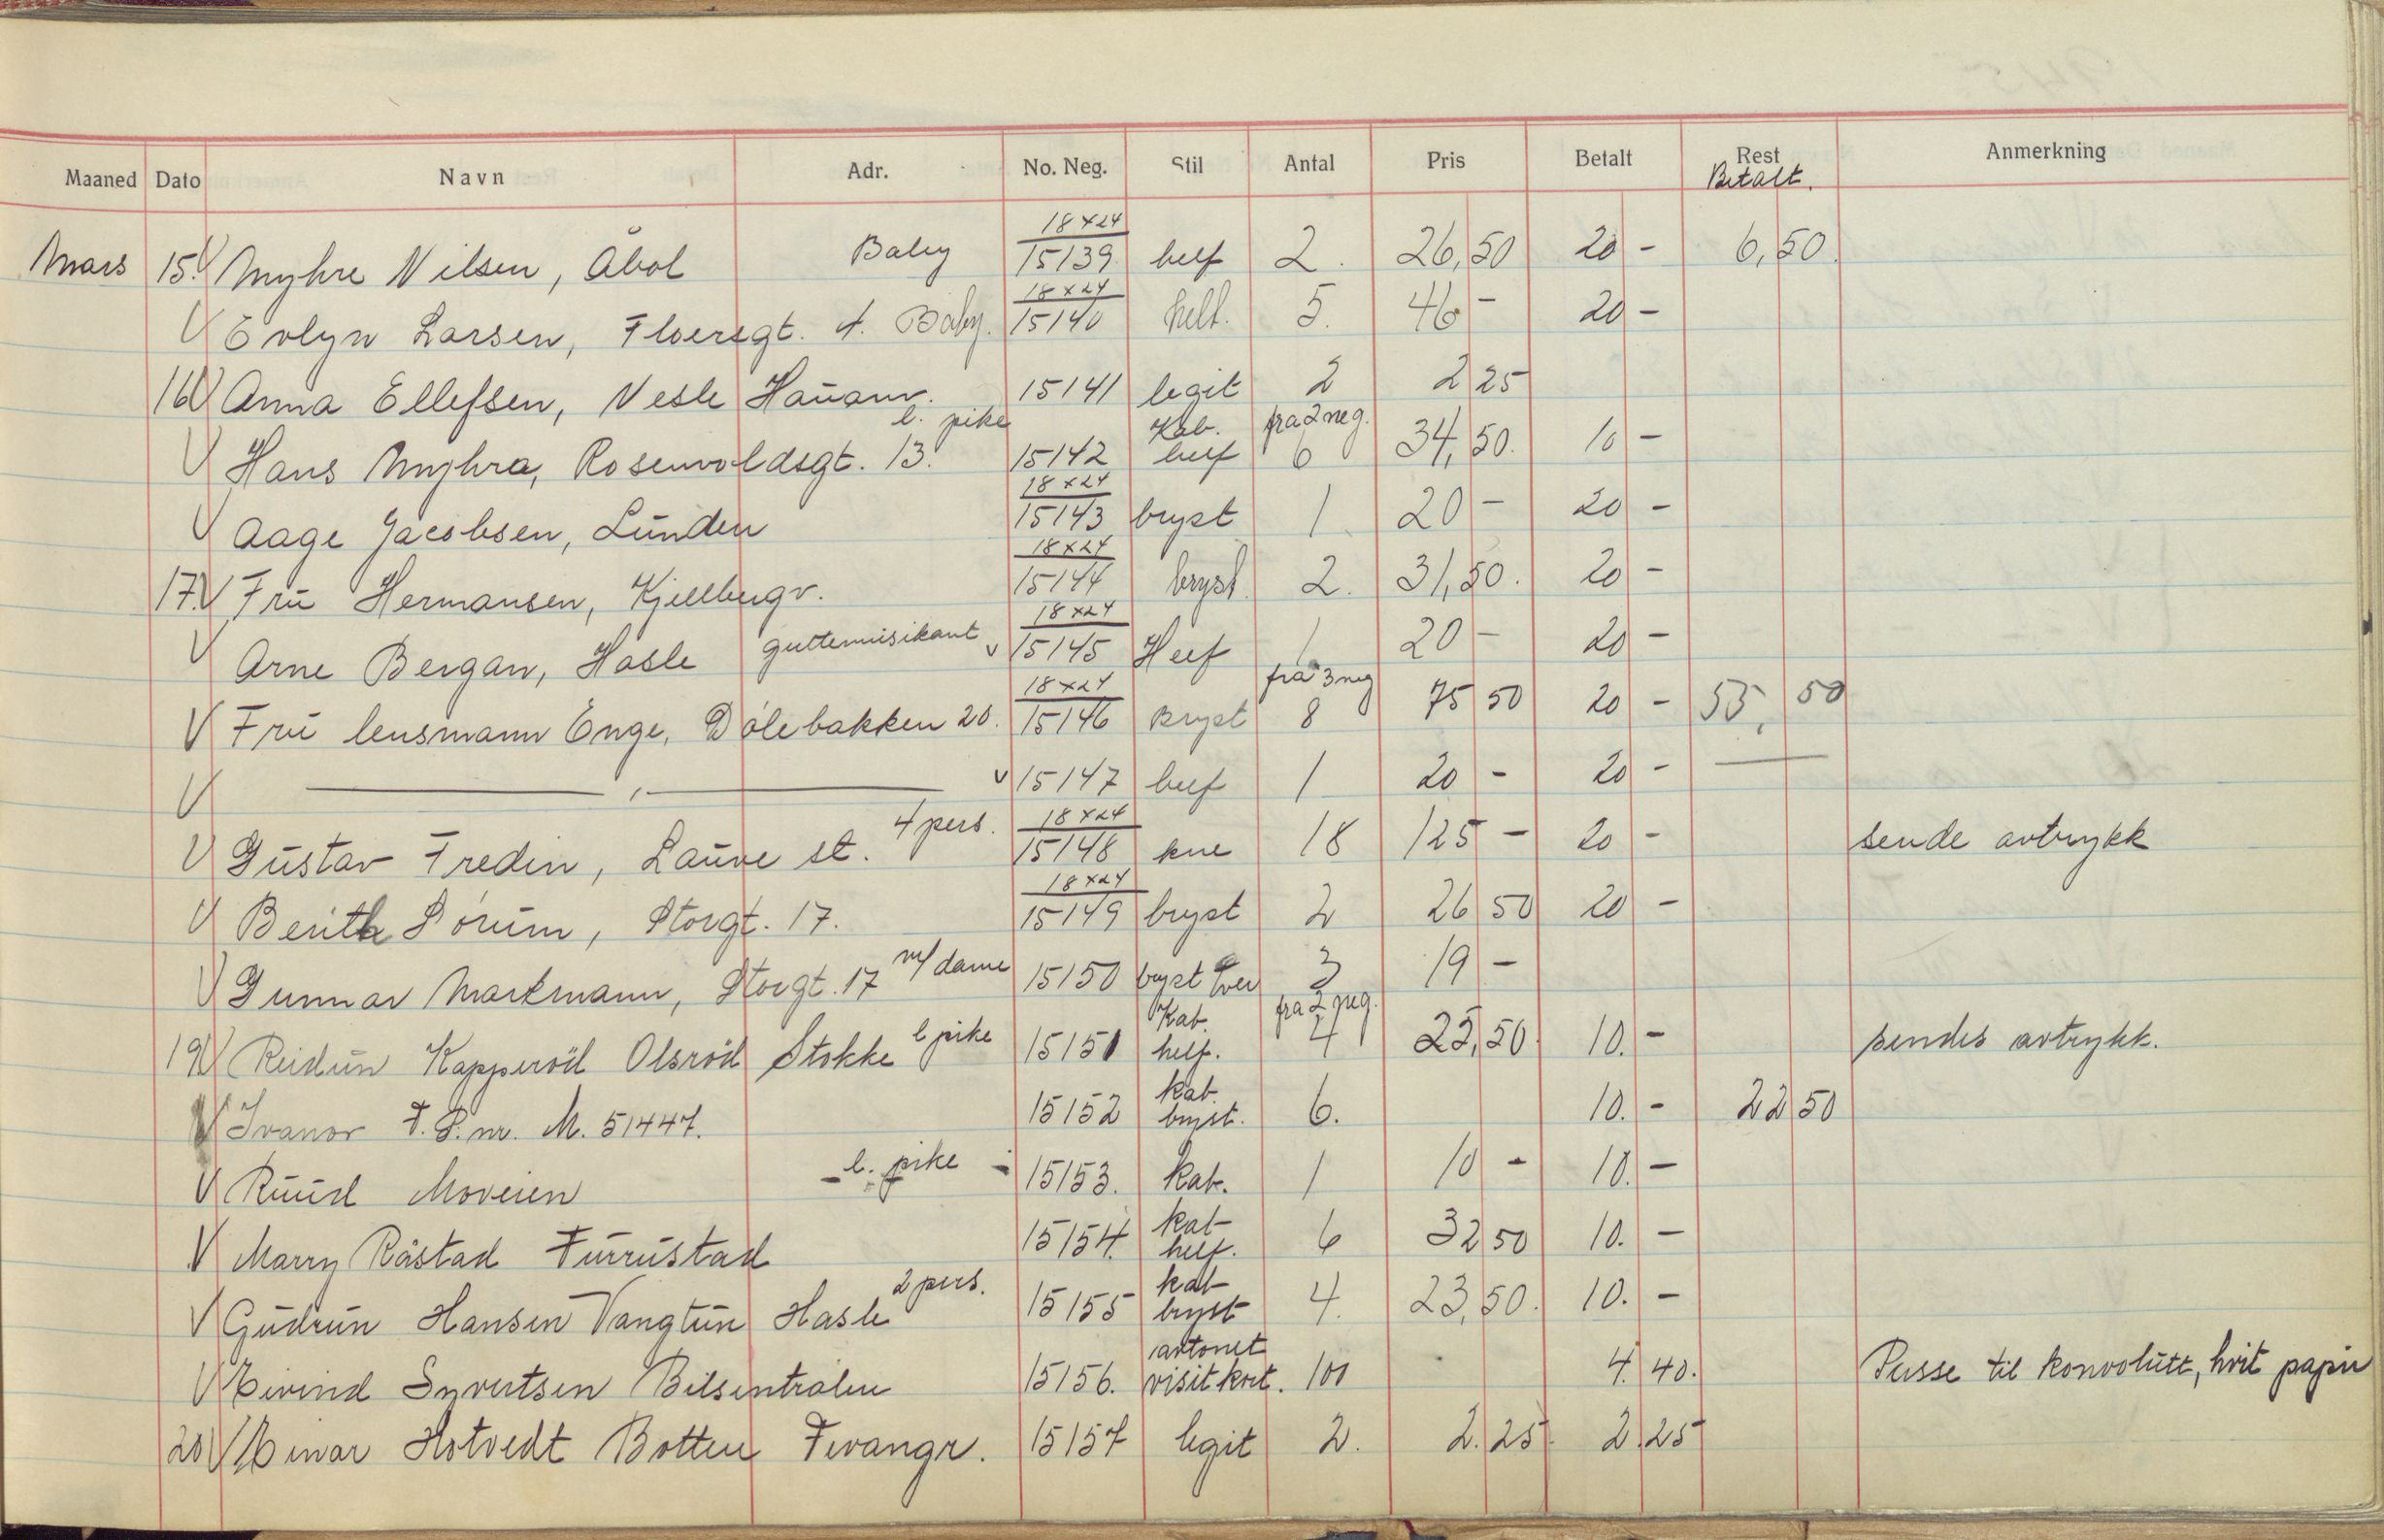 Maaned Dato Navn Adr. No. Neg. Stil Antal Pris Betalt Rest Anmerkning
Betalt.
18x24
Mars 15. V Myhre Nilsen, Åbol Baby 15139 helf 2. 26,50 20 - 6,50.
18x24
V Evlyn Larsen, Floersgt. 4. Baby. 15140 helf. 5. 46 - 20 -
16 V Anna Ellefsen, Nesle Hauanv. 15141 legit 2 2 25
l. pike Kab. fra 2 neg.
V Hans Myhra, Rosenvoldsgt. 13. 15142 helf 6 34,50. 10 -
18x24
V Aage Jacobsen, Lunden 15143 bryst 1 20 - 20 -
18x24
17. V Fru Hermansen, Kjellbergv. 15144 bryst. 2. 31,50. 20 -
18x24
V Arne Bergan, Hasle guttemusikant v 15145 Helf 1 20 - 20 -
18x24 fra 3 neg
V Fru lensmann Enge, Dølebakken 20. 15146 Bryst 8 75 50 20 - 55, 50
V —— " —— v 15147 helf 1 20 - 20 - —
4 pers. 18x24
V Gustav Fredin, Lauve st. 15148 kne 18 125 - 20 - sende avtrykk
18x24
V Berith Sørum, Storgt. 17. 15149 bryst 2 26 50 20 -
V Gunnar Markmann, Storgt. 17 m/ dame 15150 bryst tver 3 19 -
Kab. fra 2 neg.
19 V Reidun Kapperød Olsrød Stokke l pike 15151 helf. 4 25,50. 10. - sendes avtrykk.
kab.
V Ivanor F.P. nr. M. 51447. 15152 bryst. 6. 10. - 22 50
V Ruud Moveien - l. pike - 15153. kab. 1 10 - 10. -
kab
V Marry Råstad Furustad 15154. helf. 6 32 50 10. -
2 pers. kab
V Gudrun Hansen Vangtun Hasle 15155 bryst 4. 23,50. 10. -
avtonet
V Eivind Syvertsen Bilsentralen 15156. visitkort. 100 4. 40. Passe til konvolutt, hvit papir
20 V Einar Hotvedt Botten Tevangr. 15157 legit 2. 2. 25. 2. 25